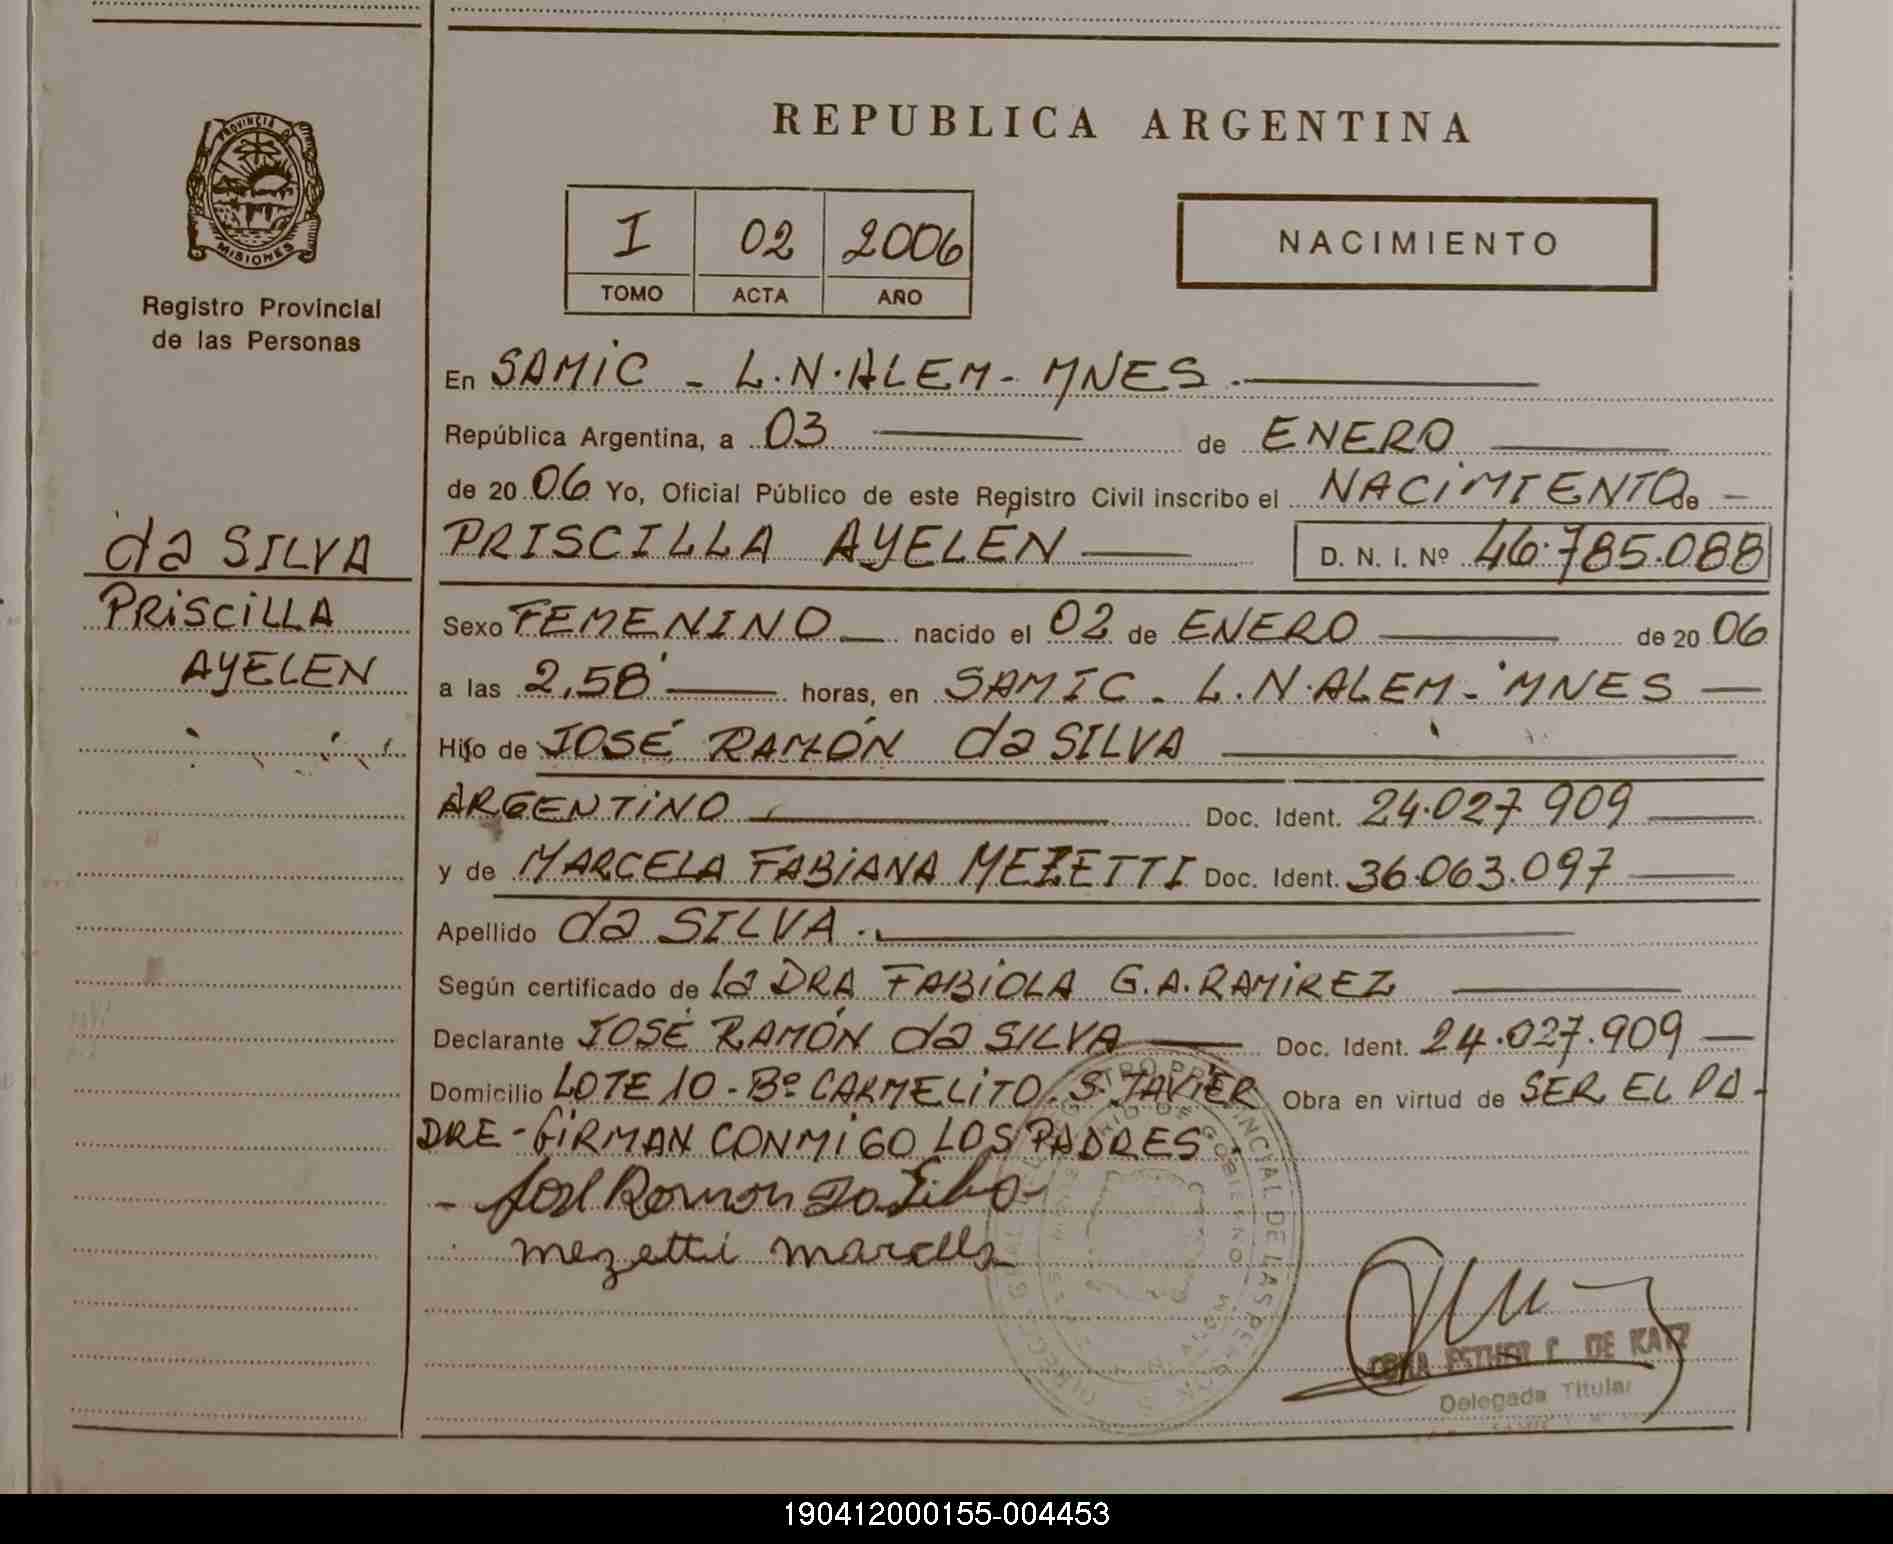 REPUBLICA ARGENTINA
PROVINCIA D
MISIONES
Registro Provincial
de las Personas
I 02 2006
TOMO ACTA AÑO
NACIMIENTO
En SAMIC - L.N.ALEM - MNES.
República Argentina, a 03 de ENERO
de 20 06 Yo, Oficial Público de este Registro Civil inscribo el NACIMIENTO de
PRISCILLA AYELÉN D. N. I. Nº 46.785.088
da SILVA
PRISCILLA
AYELEN
Sexo FEMENINO nacido el 02 de ENERO de 20 06
a las 2,58 horas, en SAMIC - L.N.ALEM - MNES
Hijo de JOSÉ RAMÓN da SILVA
ARGENTINO Doc. Ident. 24.027.909
y de MARCELA FABIANA MEZETTI Doc. Ident. 36.063.097
Apellido da SILVA.
Según certificado de la DRA FABIOLA G.A.RAMIREZ
Declarante JOSÉ RAMÓN da SILVA Doc. Ident. 24.027.909
Domicilio LOTE 10 - Bº CARMELITO. S. JAVIER Obra en virtud de SER EL PA-
DRE - FIRMAN CONMIGO LOS PADRES.
- José Ramon Da Silva -
Mezetti Marcela
ESTHER C. DE KATZ
Delegada Titular
190412000155-004453